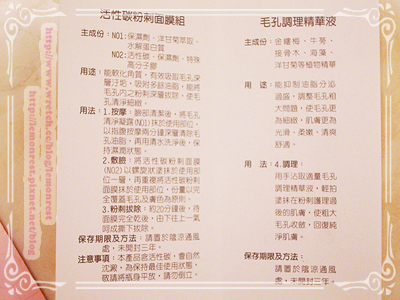 活性碳粉刺面膜組
主成份：NO1:保濕劑、洋甘菊萃取、
水解蛋白質
NO2:活性碳、保濕劑、特殊
高分子膠
用途：能軟化角質，有效吸取毛孔深
層汙垢，吸附多餘油脂，能將
毛孔內之粉刺深層拔除，使毛
孔清淨細緻。
用法：1.按摩．臉部清潔後，將毛孔
清淨凝露(NO1)抹於使用部位，
以指腹按摩兩分鐘深層清除毛
孔油脂，再用清水洗淨後，保
持濕潤狀態。
2.敷臉．將活性碳粉刺面膜
(NO2)以螺旋狀塗抹於使用部位
一層，再重複將活性碳粉刺
面膜抹於使用部位，份量以完
全覆蓋毛孔及膚色為原則。
3.粉刺拔除．約20分鐘後，待
面膜完全乾後，由下往上一氣
呵成撕下拔除。
保存期限及方法：請置於陰涼通風
處，未開封三年。
注意事項：本產品含活性碳，會自然
沈澱，為保持最佳使用狀態，
敬請將瓶身平放，請勿倒立。
毛孔調理精華液
主成份：金縷梅、牛蒡、
接骨木、海藻、
洋甘菊等植物精華
用途：能抑制油脂分泌
過盛，調整毛孔粗
大問題，使毛孔更
為細緻，肌膚更為
光滑、柔嫩、清爽
舒適。
用法：4.調理．
用手沾取適量毛孔
調理精華液，輕拍
塗抹在粉刺護理過
後的肌膚，使粗大
毛孔收斂，回復純
淨肌膚。
保存期限及方法：
請置於陰涼通風
處，未開封三年。
http://www.wretch.cc/blog/lemonrest
http://lemonrest.pixnet.net/blog